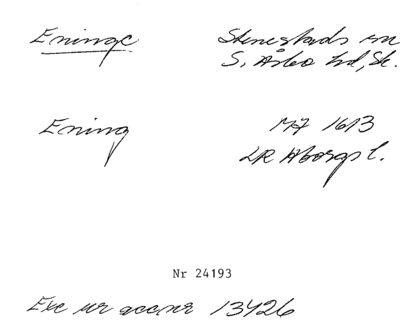 Eninge Stenestads sn
S. Åsbo hd, Sk.
Ening M7 1613
LR Åborgs l.
Nr 24193
Exc ur accnr 13426